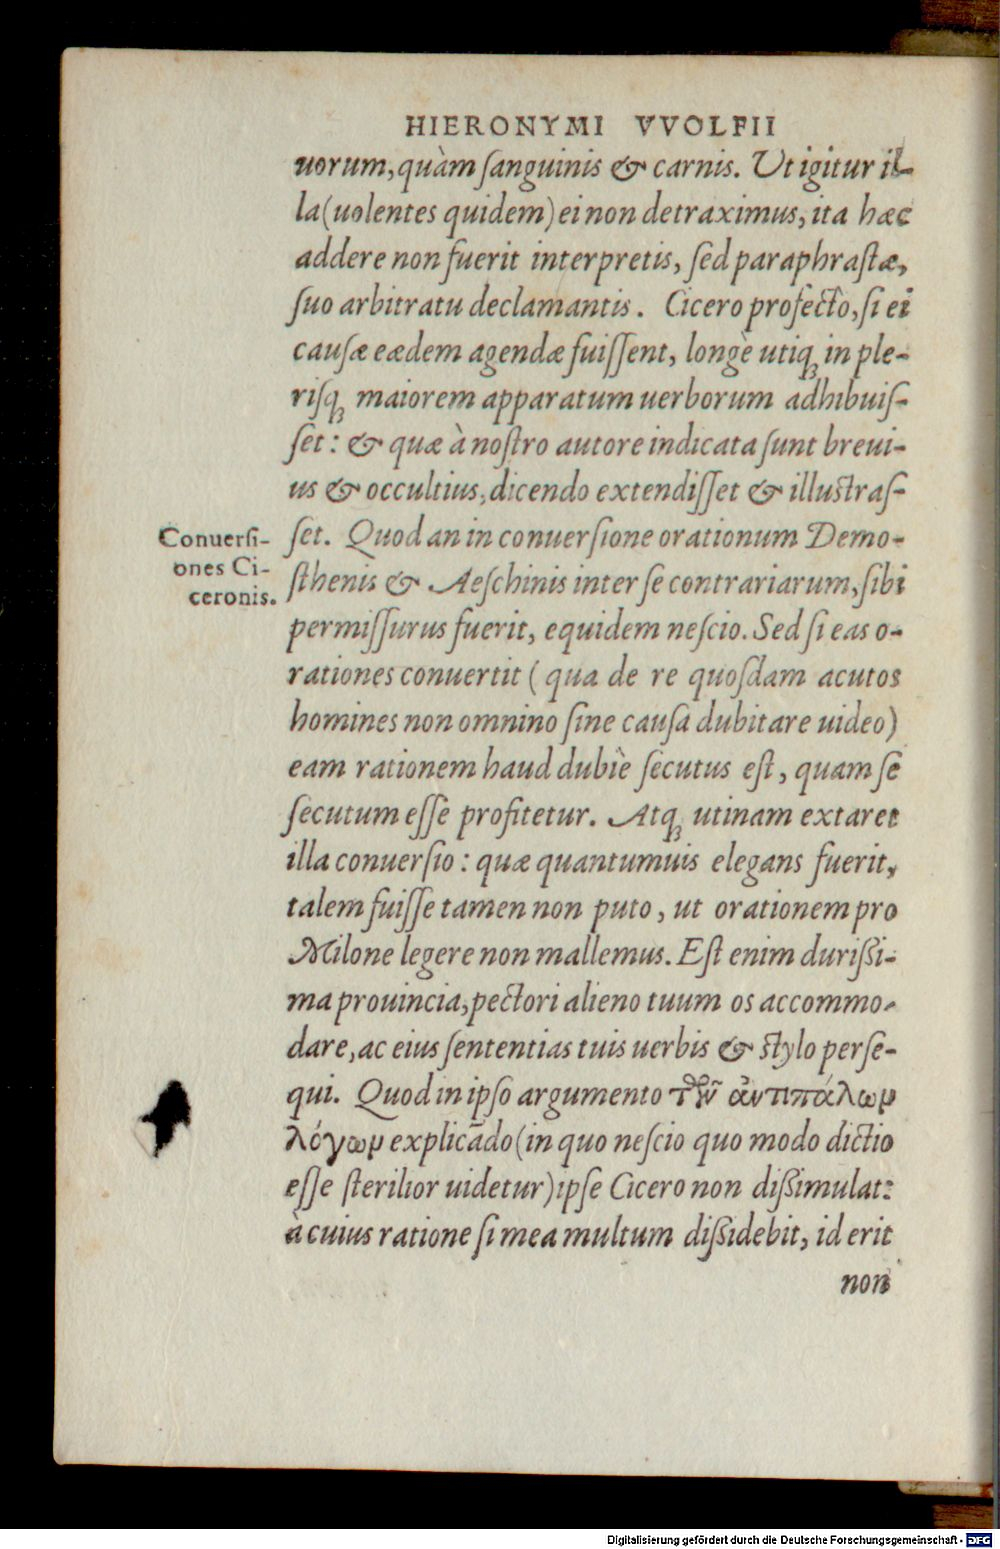 HIERONYMI VVOLFII
uorum, quàm ſanguinis & carnis. Ut igitur il-
la (uolentes quidem) ei non detraximus, ita hæc
addere non fuerit interpretis, ſed paraphraſtæ,
ſuo arbitratu declamantis. Cicero profectò, ſi ei
cauſæ eædem agendæ fuiſſent, longè utiqꝫ in ple-
riſqꝫ maiorem apparatum uerborum adhibuiſ-
ſet: & quæ à noſtro autore indicata ſunt breui-
us & occultius, dicendo extendiſſet & illuſtraſ-
ſet. Quod an in conuerſione orationum Demo-
ſthenis & Aeſchinis inter ſe contrariarum, ſibi
permiſſurus fuerit, equidem neſcio. Sed ſi eas o-
rationes conuertit ( qua de re quoſdam acutos
homines non omnino ſine cauſa dubitare uideo)
eam rationem haud dubiè ſecutus eſt, quam ſe
ſecutum eſſe profitetur. Atqꝫ utinam extaret
illa conuerſio: quæ quantumuis elegans fuerit,
talem fuiſſe tamen non puto, ut orationem pro
Milone legere non mallemus. Eſt enim durißi-
ma prouincia, pectori alieno tuum os accommo-
dare, ac eius ſententias tuis uerbis & ſtylo perſe-
qui. Quod in ipſo argumento τῶν ἀντιπάλων
λόγων explicãdo (in quo neſcio quo modo dictio
eſſe ſterilior uidetur) ipſe Cicero non dißimulat:
à cuius ratione ſi mea multum dißidebit, id erit
non
Conuerſi-
ones Ci-
ceronis.
Digitalisierung gefördert durch die Deutsche Forschungsgemeinschaft - DFG